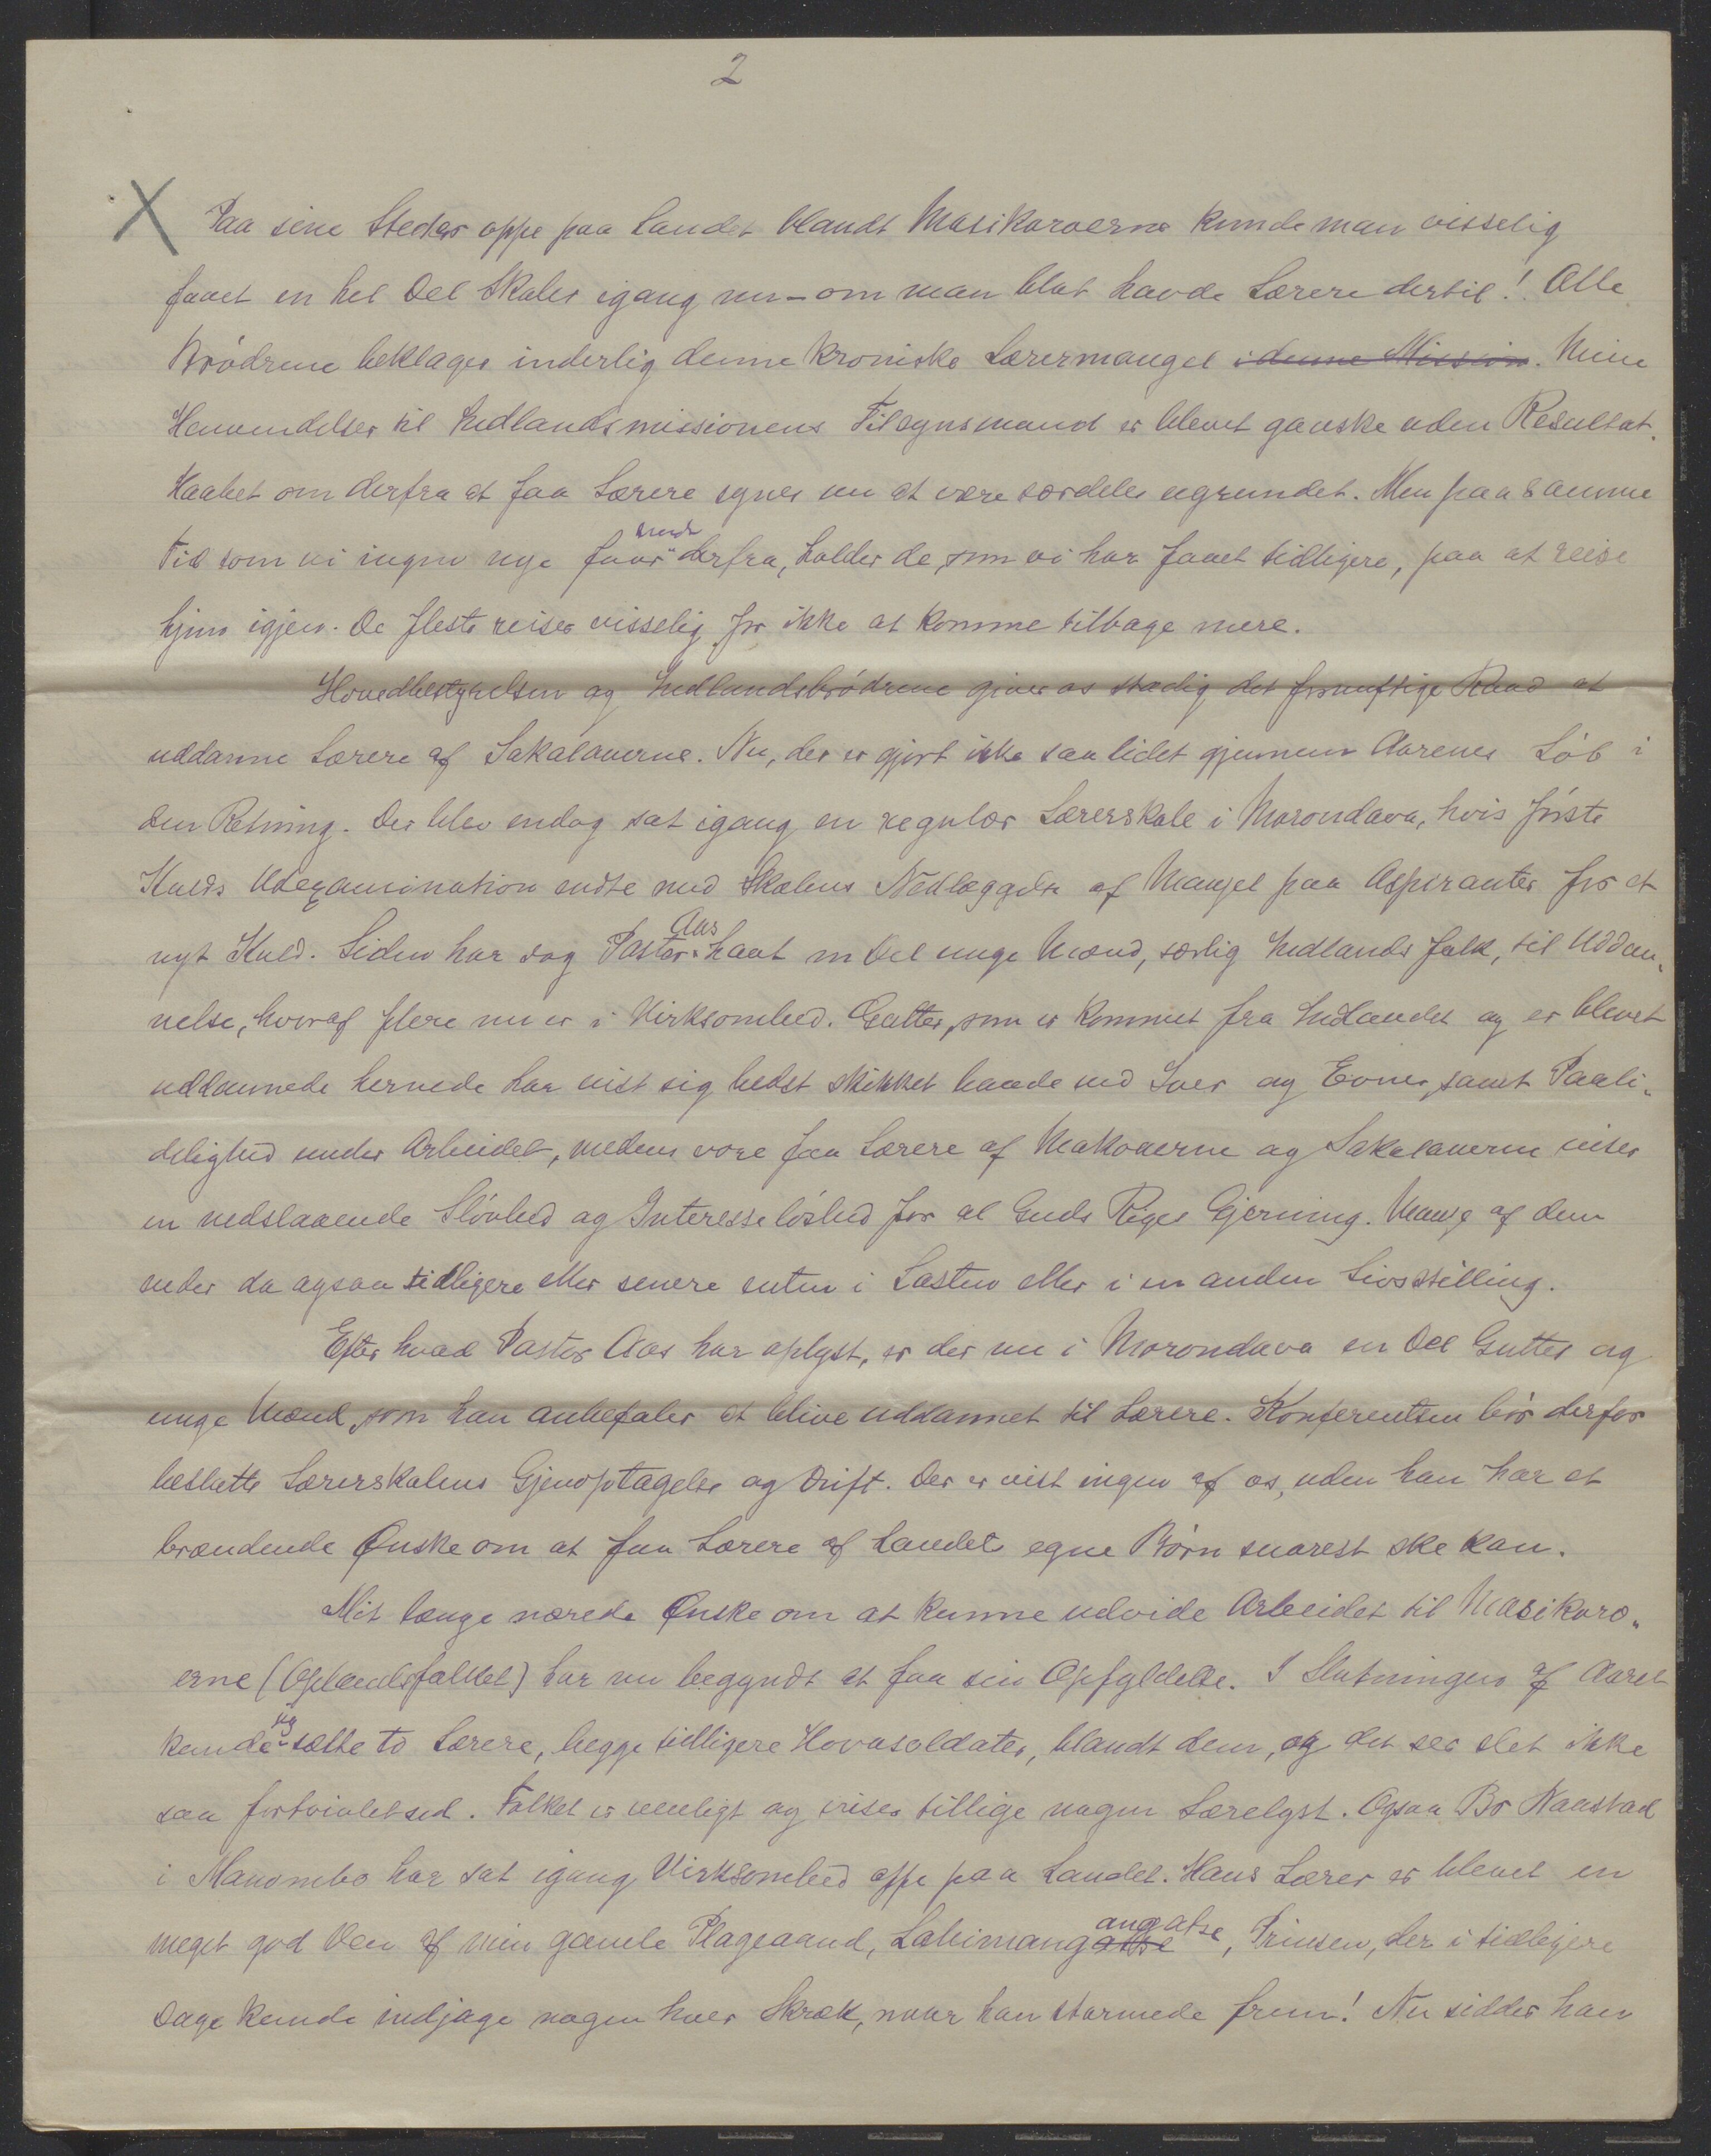 2
X Paa sine Steder oppe paa Landet blandt Masikoroerne kunde man visselig
faaet en hel Del Skoler igang nu - om man blot havde Lærere dertil! Alle
Brødrene beklager inderlig denne kroniske Lærermangel i denne Mission. Mine
Henvendelser til Indlandsmissionens Tilsynsmand er blevet ganske uden Resultat.
Haabet om derfra at faa Lærere synes nu at være særdeles ugrundet. Men paa samme
Tid som vi ingen nye faar derfra, holder de, som vi har faaet tidligere, paa at reise
hjem igjen. De fleste reiser visselig for ikke at komme tilbage mere.
Hovedbestyrelsen og Indlandsbrødrene giver os stadig det fornuftige Raad at
uddanne Lærere af Sakalaverne. Nu, der er gjort ikke saa lidet gjennem Aarenes Løb i
den Retning. Der blev endog sat igang en regulær Lærerskole i Morondava, hvis første
Kulds Udexamination endte med Skolens Nedlæggelse af Mangel paa Aspiranter for et
nyt Kuld. Siden har dog Pastor Aas havt en Del unge Mænd, særlig Indlands folk, til Uddan-
nelse, hvoraf flere nu er i Virksomhed. Gutter, som er kommet fra Indlandet og er blevet
uddannede hernede har vist sig bedst skikket baade ved Iver og Evner, samt Paali-
delighed under Arbeidet, medens vore faa Lærere af Makoaerne og Sakalaverne viser
en nedslaaende Sløvhed og Interesseløshed for al Guds Riges Gjerning. Mange af dem
ender da ogsaa tidligere eller senere enten i Lasten eller i en anden Livsstilling.
Efter hvad Pastor Aas har oplyst, er der nu i Morondava en Del Gutter og
unge Mænd, som han anbefaler at blive uddannet til Lærere. Konferentsen bør derfor
beslutte Lærerskolens Gjenoptagelse og Drift. Der er vist ingen af os, uden han har et
brændende Ønske om at faa Lærere af Landets egne Børn snarest ske kan.
Mit længe nærede Ønske om at kunne udvide Arbeidet til Masikoro-
erne (Oplandsfolket) har nu begyndt at faa sin Opfyldelse. I Slutningen af Aaret
kunde jeg sætte to Lærere, begge tidligere Hovasoldater, blandt dem, og det ser slet ikke
saa fortvivlet ud. Folket er venligt og viser tillige nogen Lærelyst. Ogsaa Br Naastad
i Manombo har sat igang Virksomhed oppe paa Landet. Hans Lærer er blevet en
meget god Ven af min gamle Plageaand, Lahimangatse angatse, Prinsen, der i tidligere
Dage kunde indjage nogen hver Skræk, naar han stormede frem! Nu sidder han